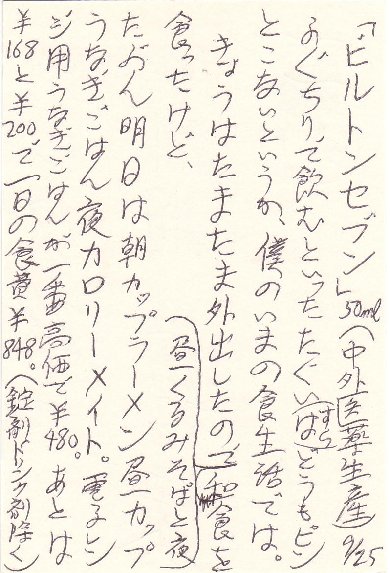 「ビルトンセブン」50ml(中外医薬生産) 9/25
ぐちりて飲むといったたぐいはどうもピン
とこないというか、僕のいまの食生活では。
きょうはたまたま外出したので和食を
食ったけど、(昼くるみそばと夜)
たぶん明日は朝カップラーメン昼カップ
うなぎごはん夜カロリーメイト。電子レン
ジ用うなぎごはんが一番高価で¥480。あとは
¥168と¥200で一日の食費¥848。(錠剤ドリンク剤除く)